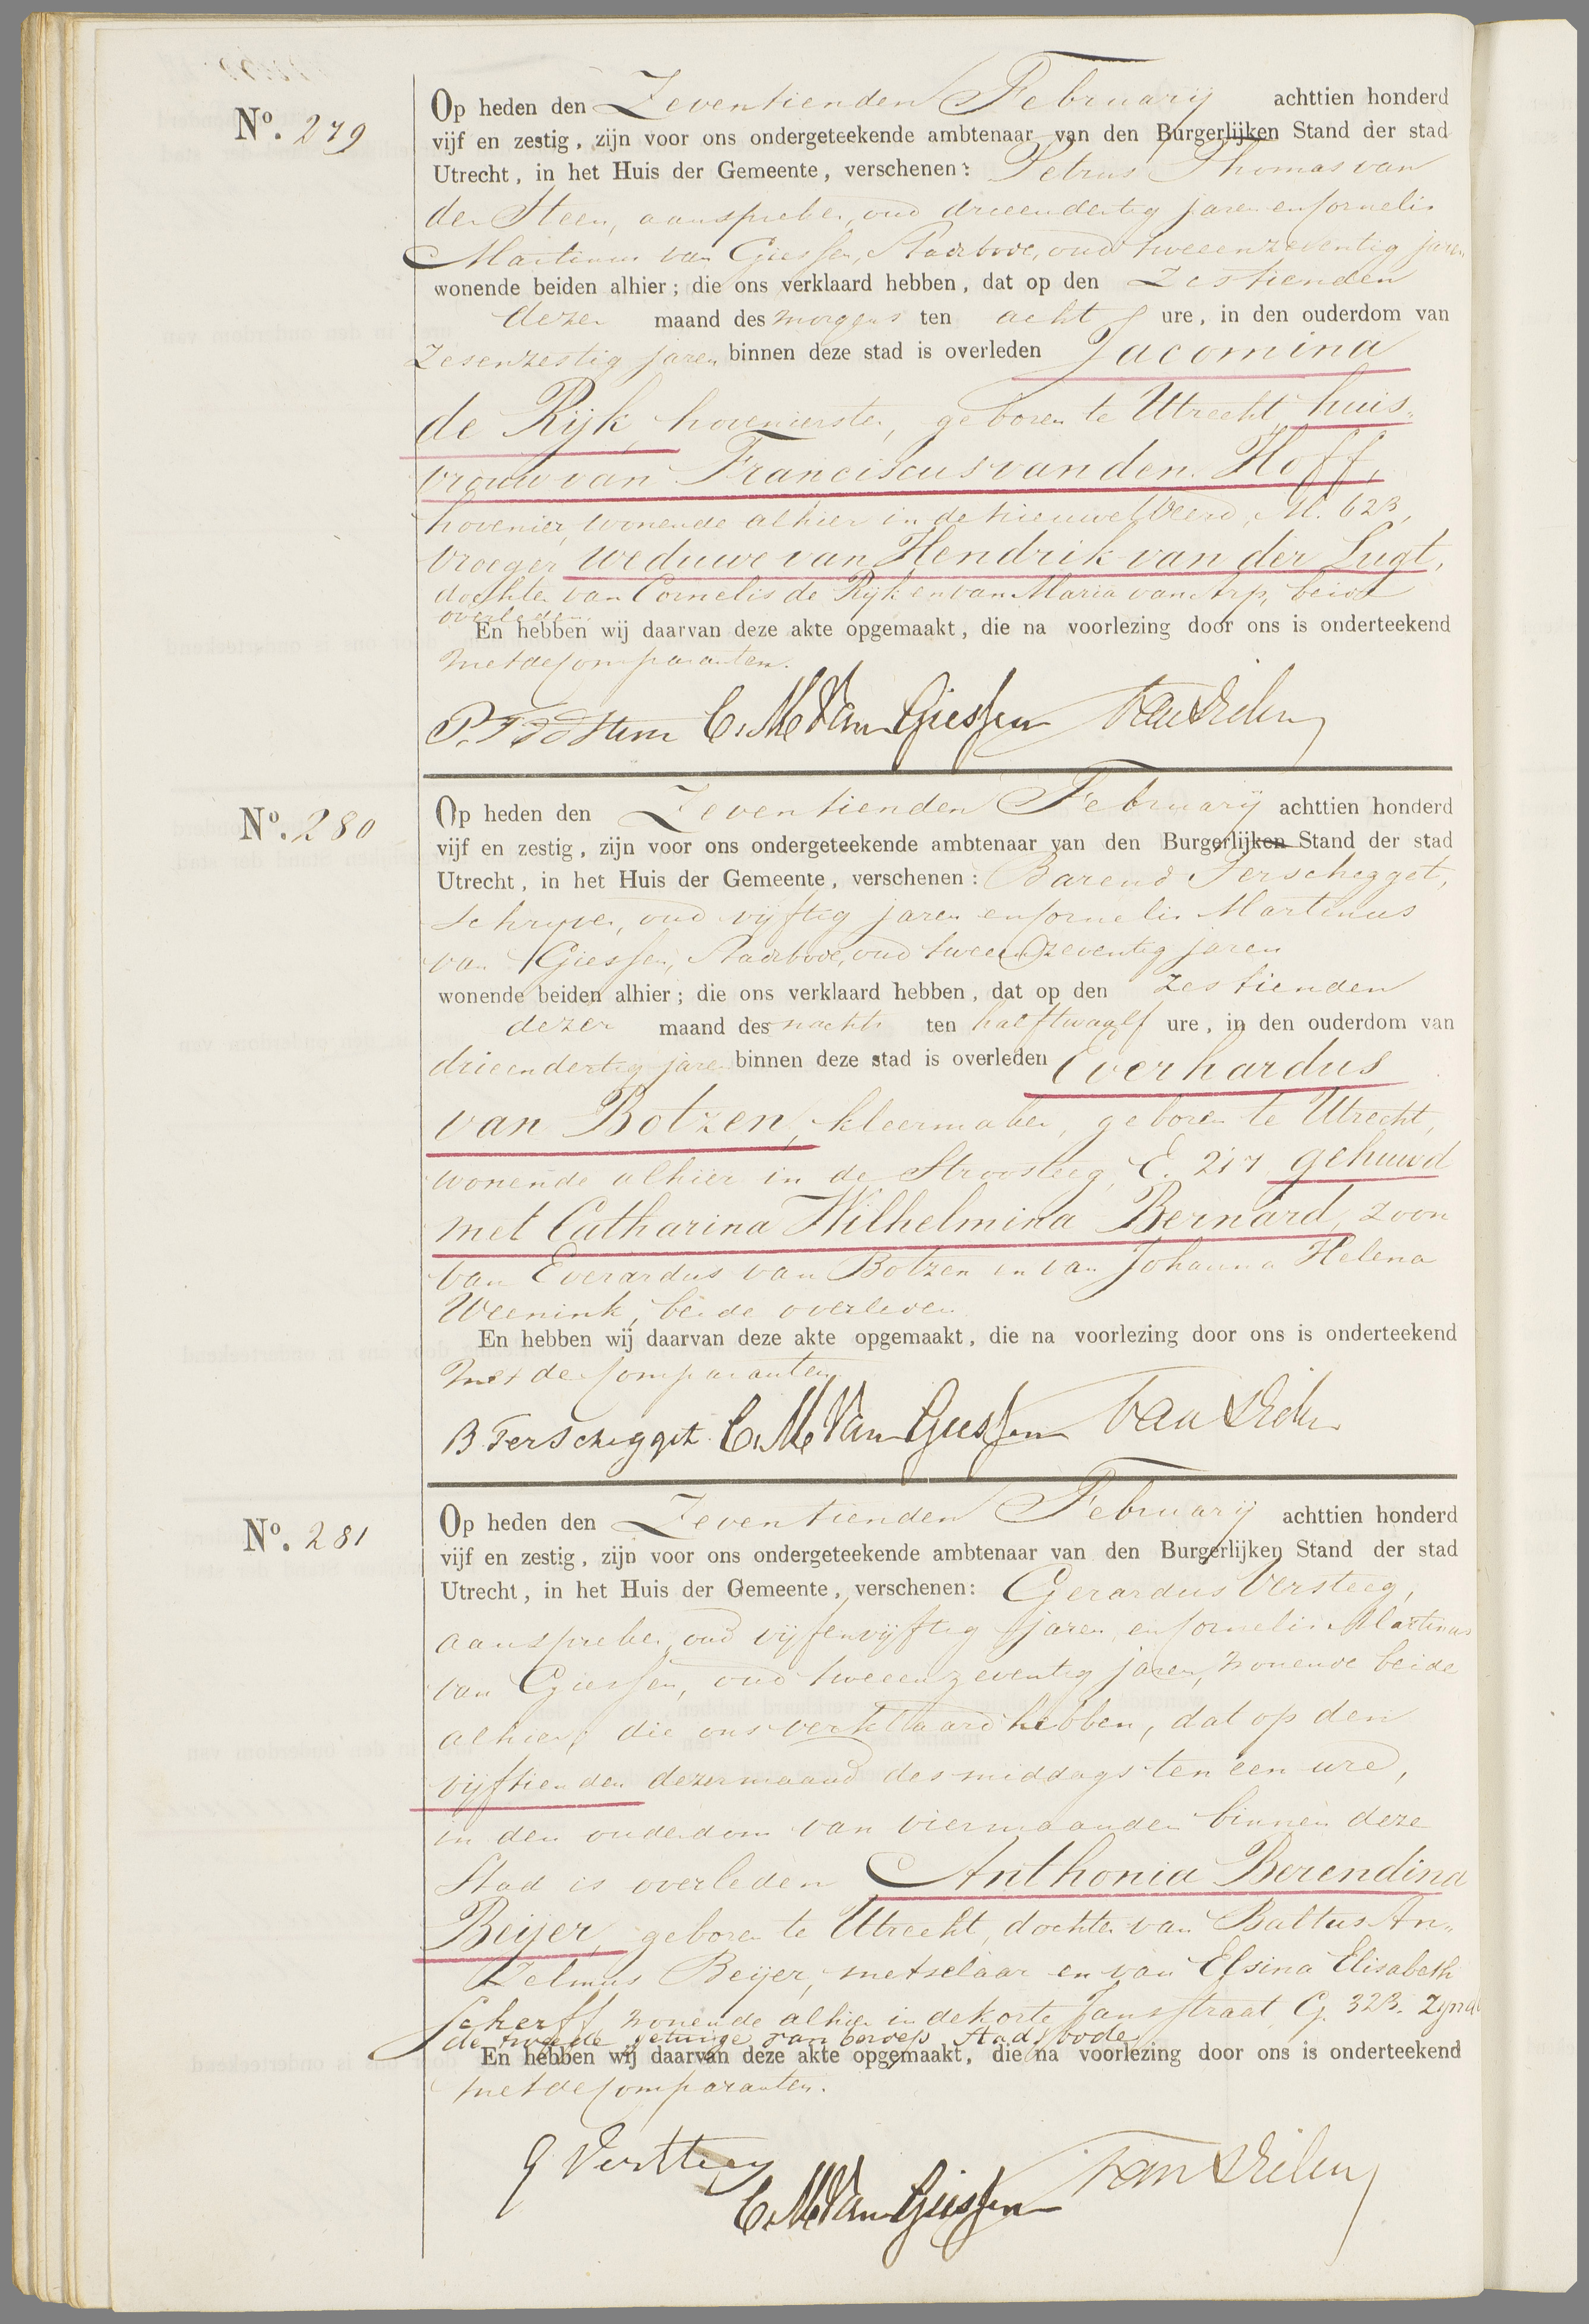 No. 279
Op heden den Zeventienden Februarij achttien honderd
vijf en zestig, zijn voor ons ondergeteekende ambtenaar van den Burgerlijken Stand der stad
Utrecht, in het Huis der Gemeente, verschenen: Petrus Thomas van
der Steen, aanspreker, oud drieendertig jaren en Cornelis
Martinus van Giessen, Stadsbode, oud tweeenzeventig jaren
wonende beiden alhier; die ons verklaard hebben, dat op den Zestienden
dezer maand des morgens ten acht ure, in den ouderdom van
Zesenzestig jaren binnen deze stad is overleden Jacomina
de Rijk, hovenierster, geboren te Utrecht, huis-
vrouw van Franciscus van den Hoff,
hovenier, wonende alhier in de Nieuwe Weerd, M. 623,
vroeger weduwe van Hendrik van der Lugt,
dochter van Cornelis de Rijk en van Maria van Arp, beide
overleden.
En hebben wij daarvan deze akte opgemaakt, die na voorlezing door ons is onderteekend
met de Comparanten.
C. M. Van Giessen
No. 280
Op heden den Zeventienden Februarij achttien honderd
vijf en zestig, zijn voor ons ondergeteekende ambtenaar van den Burgerlijken Stand der stad
Utrecht, in het Huis der Gemeente, verschenen: Barend Terschegget,
Schryver, oud vyftig jaren en Cornelis Martinus
van Giessen, Stadsbode, oud tweeenzeventig jaren
wonende beiden alhier; die ons verklaard hebben, dat op den Zestienden
dezer maand des nachts ten half twaalf ure, in den ouderdom van
drieendertig jaren binnen deze stad is overleden Everhardus
van Botzen, kleermaker, geboren te Utrecht,
wonende alhier in de Stroosteeg, E. 217 gehuwd
met Catharina Wilhelmina Bernard, zoon
van Everardus van Botzen en van Johanna Helena
Weenink, beide overleden
En hebben wij daarvan deze akte opgemaakt, die na voorlezing door ons is onderteekend
met de Comparanten
B Terschegget C. M. Van Giessen
No. 281
Op heden den Zeventienden Februarij achttien honderd
vijf en zestig, zijn voor ons ondergeteekende ambtenaar van den Burgerlijken Stand der stad
Utrecht, in het Huis der Gemeente, verschenen: Gerardus Versteeg,
aanspreker, oud vijfenvijftig jaren, en Cornelis Martinus
van Giessen, oud tweeenzeventig jaren, wonende beide
alhier, die ons verklaard hebben, dat op den
vijftienden dezer maand des middags ten een ure,
in den ouderdom van vier maanden binnen deze
Stad is overleden Anthonia Berendina
Beijer, geboren te Utrecht, dochter van Baltus An-
zelmus Beijer, metselaar en van Elsina Elisabeth
Scherff, wonende alhier in de korte Jansstraat, G. 323. Zynde
de tweede getuige van beroep Stadsbode
En hebben wij daarvan deze akte opgemaakt, die na voorlezing door ons is onderteekend
met de Comparanten.
G Versteeg
C. M. Van Giessen